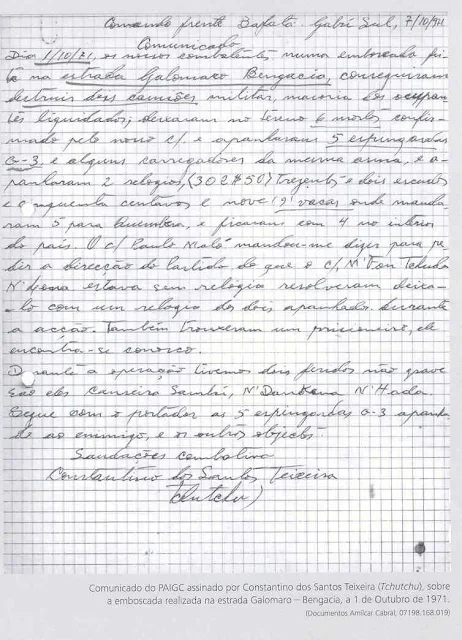 Comando frente Bafatá. Gabú Sul, 7/10/71
Comunicado
Dia 1/10/71, os nossos combatentes numa emboscada fei-
ta na estrada Galomaro Bengacia, conseguiram
destruir dois camiões militar, maioria dos ocupan-
tes liquidados; deixaram no terreno 6 mortos confir-
mado pelo nosso c/, e apanharam 5 espingardas
G-3, e alguns carregadores da mesma arma, e a-
panharam 2 relogios, (302$50) Trezentos e dois escudos
e cinquenta centavos e nove (9) vacas onde manda-
ram 5 para, e ficaram com 4 no interior
do país. O c/ Paulo mandou-me dizer para pe-
dir a direcção do Partido de que o c/, N'
N' estava sem relogio resolveram deixa-
lo com um relogio dos dois apanhados durante
a acção. Também trouxeram um prisioneiro, ele
encontra-se conosco.
Durante a operação tivemos dois feridos não grave
são eles Sambú, N' N'Hada.
Segue com o portador as 5 espingardas G-3 apanha-
da ao inimigo, e os outros objectos.
Saudações combativa
Constantino dos Santos Teixeira
Tchutchu)
Comunicado do PAIGC assinado por Constantino dos Santos Teixeira (Tchutchu), sobre
a emboscada realizada na estrada Galomaro – Bengacia, a 1 de Outubro de 1971.
(Documentos Amílcar Cabral, 07198.168.019)